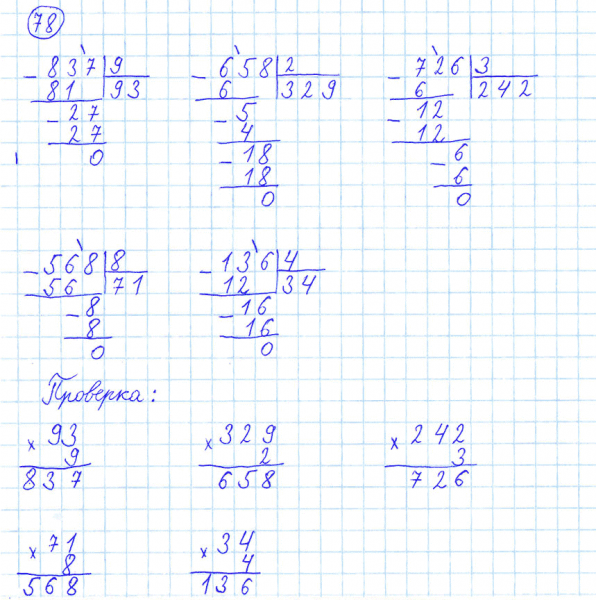 78
- 837 | 9
81 | 93
- 27
27
0
- 658 | 2
6 | 329
- 5
4
- 18
18
0
- 726 | 3
6 | 242
- 12
12
- 6
6
0
- 568 | 8
56 | 71
- 8
8
0
- 136 | 4
12 | 34
- 16
16
0
Проверка:
x 93
9
837
x 329
2
658
x 242
3
726
x 71
8
568
x 34
4
136